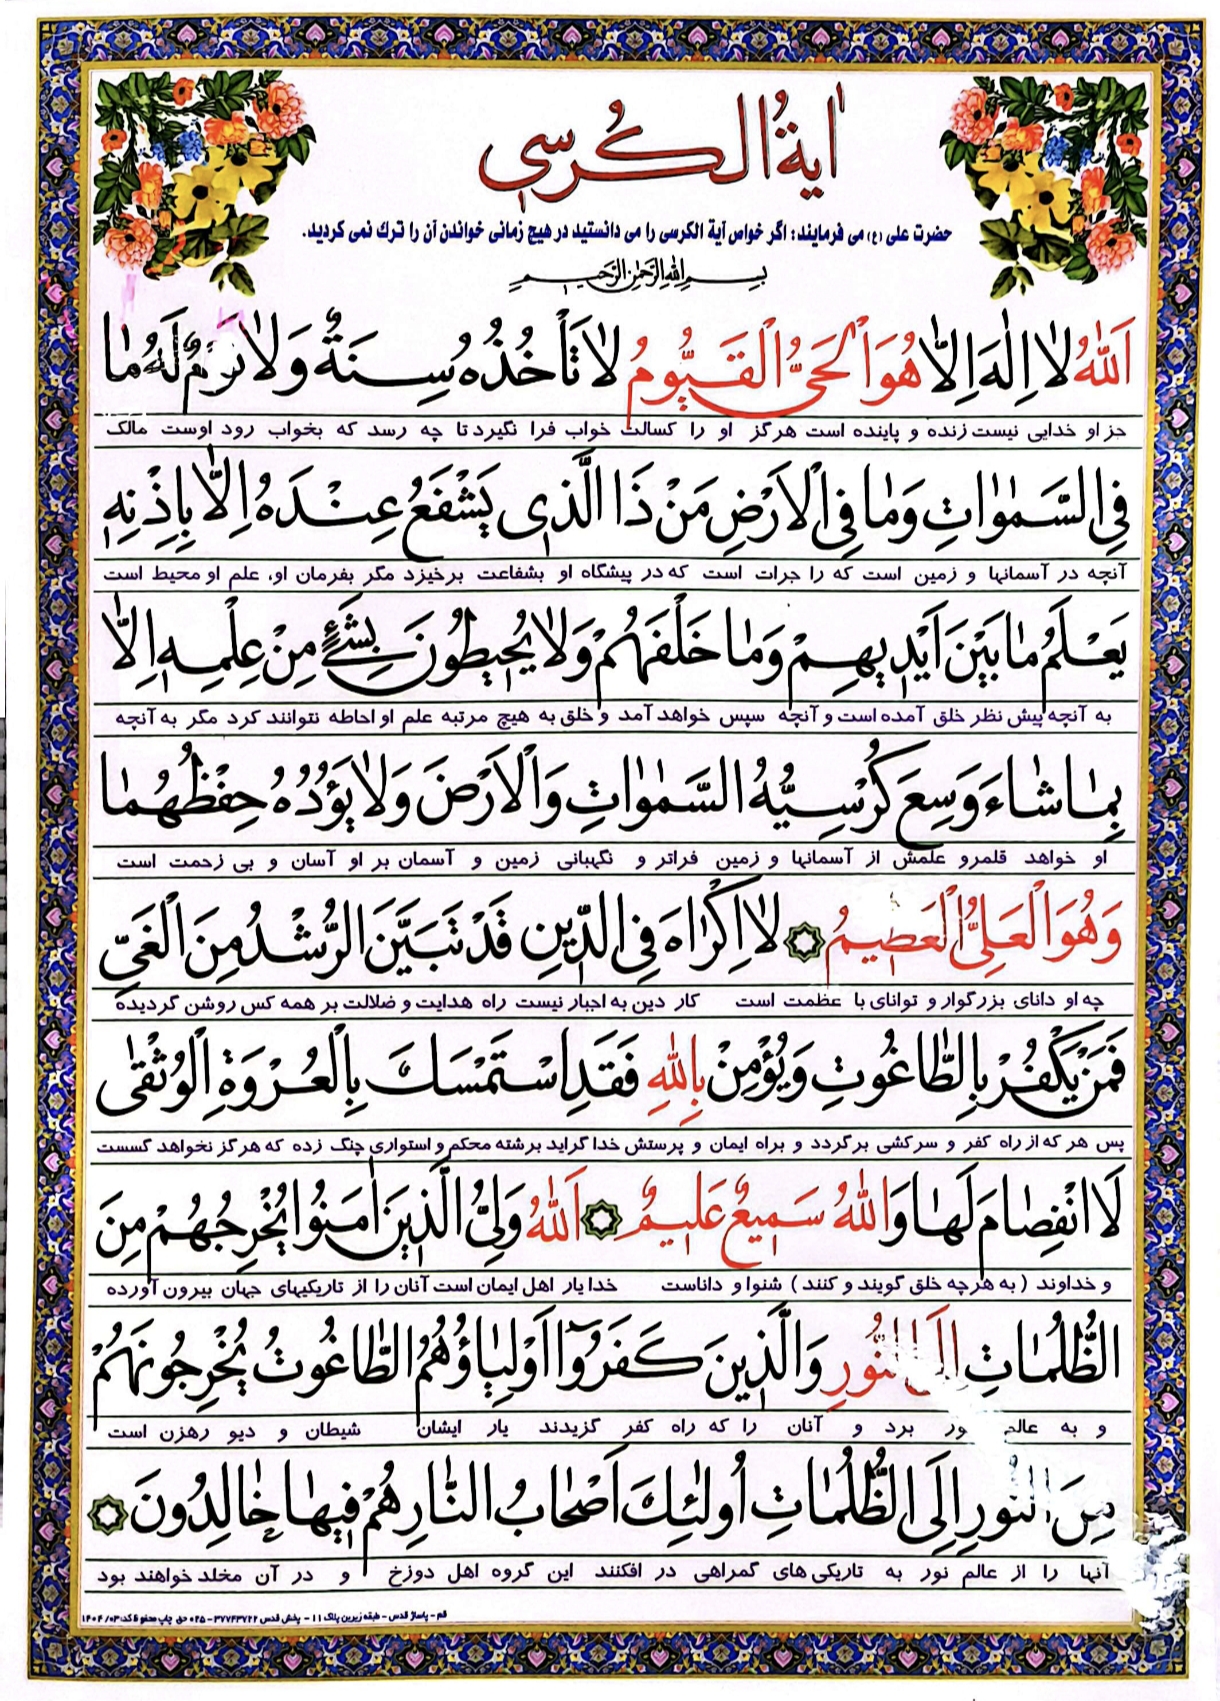 اٰیة الکرسی
حضرت علی (ع) می فرمایند: اگر خواص آیة الکرسی را می دانستید در هیچ زمانی خواندن آن را ترك نمی کردید.
بِسْمِ اللهِ الرَّحْمٰنِ الرَّحیمِ
اَللهُ لاٰ اِلٰهَ اِلاّٰ هُوَ الْحَیُّ الْقَیُّومُ لاٰ تَأْخُذُهُ سِنَةٌ وَ لاٰ نَوْمٌ لَهُ مٰا
جز او خدایی نیست زنده و پاینده است هرگز او را کسالت خواب فرا نگیرد تا چه رسد که بخواب رود اوست مالک
فِی السَّمٰوٰاتِ وَ مٰا فِی الْاَرْضِ مَنْ ذَا الَّذی یَشْفَعُ عِنْدَهُ اِلاّٰ بِاِذْنِهِ
آنچه در آسمانها و زمین است که را جرات است که در پیشگاه او بشفاعت برخیزد مگر بفرمان او، علم او محیط است
یَعْلَمُ مٰا بَیْنَ اَیْدیهِمْ وَ مٰا خَلْفَهُمْ وَ لاٰ یُحیطُونَ بِشَیْءٍ مِنْ عِلْمِهِ اِلاّٰ
به آنچه پیش نظر خلق آمده است و آنچه سپس خواهد آمد و خلق به هیچ مرتبه علم او احاطه نتوانند کرد مگر به آنچه
بِمٰا شٰاءَ وَسِعَ کُرْسِیُّهُ السَّمٰوٰاتِ وَ الْاَرْضَ وَ لاٰ یَؤُدُهُ حِفْظُهُمٰا
او خواهد قلمرو علمش از آسمانها و زمین فراتر و نگهبانی زمین و آسمان بر او آسان و بی زحمت است
وَ هُوَ الْعَلِیُّ الْعَظیمُ لاٰ اِکْرٰاهَ فِی الدّینِ قَدْ تَبَیَّنَ الرُّشْدُ مِنَ الْغَیِّ
چه او دانای بزرگوار و توانای با عظمت است کار دین به اجبار نیست راه هدایت و ضلالت بر همه کس روشن گردیده
فَمَنْ یَکْفُرْ بِالطّٰاغُوتِ وَ یُؤْمِنْ بِاللهِ فَقَدِ اسْتَمْسَكَ بِالْعُرْوَةِ الْوُثْقٰی
پس هر که از راه کفر و سرکشی برگردد و براه ایمان و پرستش خدا گراید برشته محکم و استواری چنگ زده که هرگز نخواهد گسست
لَا انْفِصٰامَ لَهٰا وَ اللهُ سَمیعٌ عَلیمٌ اَللهُ وَلِیُّ الَّذینَ اٰمَنُوا یُخْرِجُهُمْ مِنَ
و خداوند ( به هرچه خلق گویند و کنند ) شنوا و داناست خدا یار اهل ایمان است آنان را از تاریکیهای جهان بیرون آورده
الظُّلُمٰاتِ اِلَی النُّورِ وَ الَّذینَ کَفَرُوۤا اَوْلِیٰاؤُهُمُ الطّٰاغُوتُ یُخْرِجُونَهُمْ
و به عالم نور برد و آنان را که راه کفر گزیدند یار ایشان شیطان و دیو رهزن است
مِنَ النُّورِ اِلَی الظُّلُمٰاتِ اُولٰئِكَ اَصْحٰابُ النّٰارِ هُمْ فیهٰا خٰالِدُونَ
آنها را از عالم نور به تاریکی های گمراهی در افکنند این گروه اهل دوزخ و در آن مخلد خواهند بود
قم - پاساژ قدس - طبقه زیرین پلاک ۱۱ - پخش قدس ۳۷۷۴۳۷۲۲ - ۰۲۵ حق چاپ محفوظ کد: ۱۴۰۴/۰۳